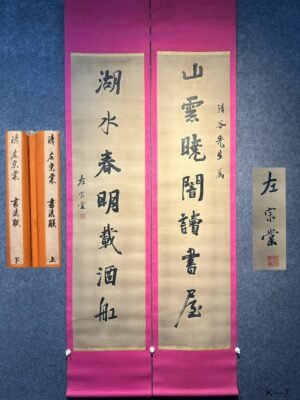 山雲曉閣讀書屋
清谷先生屬
湖水春明載酒船
左宗棠
清 左宗棠 書法联 上
清 左宗棠 書法联 下
左宗棠
K--7